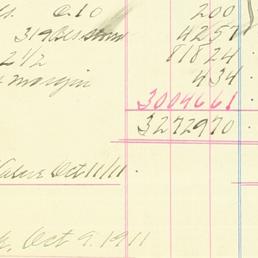 0.10 200
4257
2 1/2 81824
margin 434
3004661
3272970
Oct 11/11
Oct 9. 1911